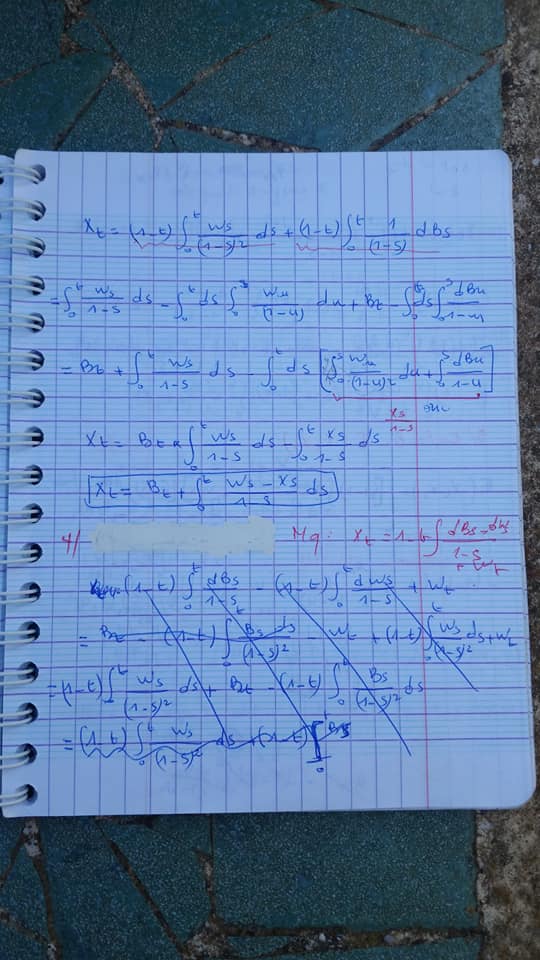 X_t = (1-t) ∫_0^t W_s/(1-s)² ds + (1-t) ∫_0^t 1/(1-s) dB_s
= ∫_0^t W_s/(1-s) ds - ∫_0^t ds ∫_0^s W_u/(1-u)² du + B_t - ∫_0^t ds ∫_0^s dB_u/(1-u)
= B_t + ∫_0^t W_s/(1-s) ds - ∫_0^t ds [∫_0^s W_u/(1-u)² du + ∫_0^s dB_u/(1-u)]
X_s/(1-s)
X_t = B_t + ∫_0^t W_s/(1-s) ds - ∫_0^t X_s/(1-s) ds
X_t = B_t + ∫_0^t (W_s - X_s)/(1-s) ds
4/ Mq: X_t = 1-t ∫ (dB_s - dW_s)/(1-s) + W_t
(1-t) ∫_0^t dB_s/(1-s) - (1-t) ∫_0^t dW_s/(1-s) + W_t
= B_t - (1-t) ∫_0^t B_s ds/(1-s)² - W_t + (1-t) ∫_0^t W_s/(1-s)² ds + W_t
= (1-t) ∫^t W_s/(1-s)² ds + B_t - (1-t) ∫_0^t B_s/(1-s)² ds
= (1-t) ∫_0^t W_s/(1-s)² ds + (1-t) ∫_0^t